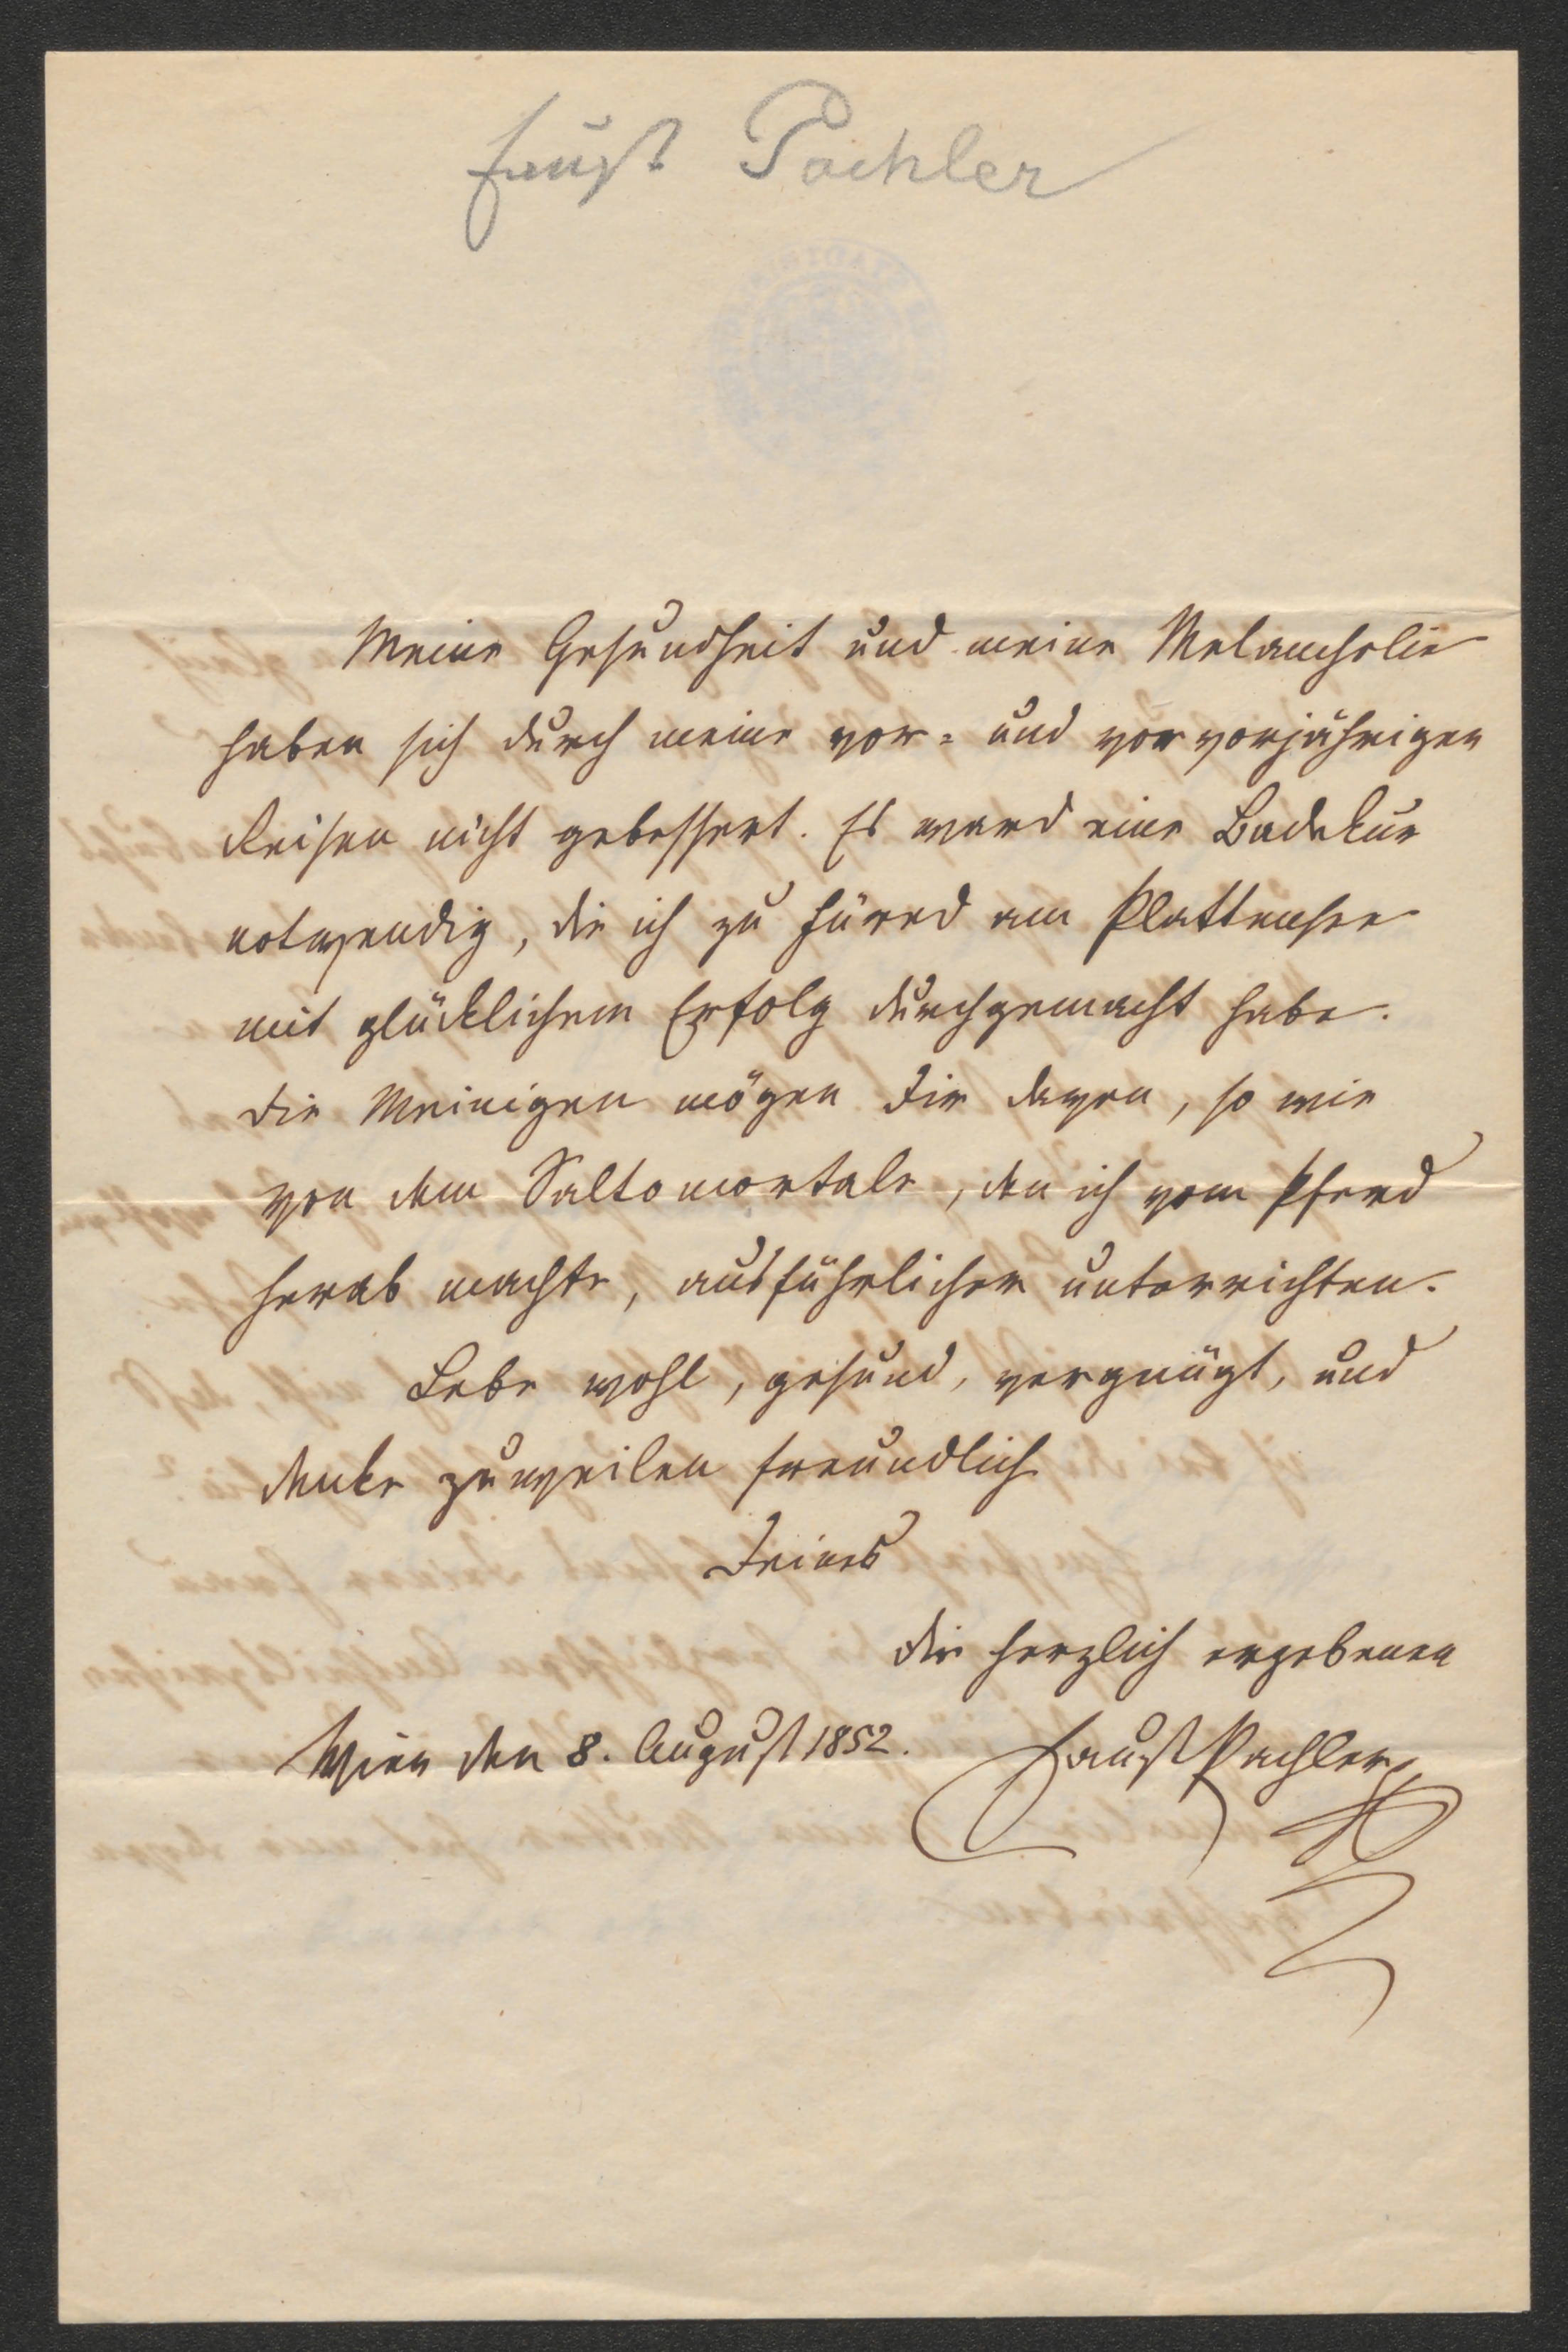 Faust Pachler
Meine Gesundheit und meine Melancholie
haben sich durch meine vor- und vorvorjährigen
Reisen nicht gebessert. Es ward eine Badekur
notwendig, die ich zu Füred am Plattensee
mit glücklichem Erfolg durchgemacht habe.
Die Meinigen mögen Dir davon, so wie
von dem Saltomortale, den ich vom Pferd
herab machte, ausführlicher unterrichten.
Lebe wohl, gesund, vergnügt, und
denke zuweilen freundlich
Deines
dir herzlich ergebenen
Wien den 8. August 1852. Faust Pachler